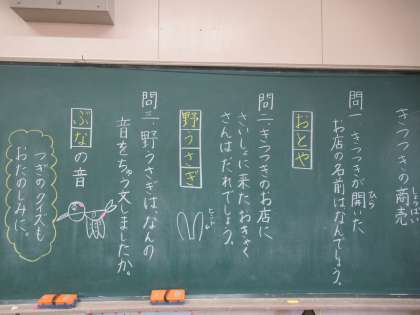 きつつきの商売
しょうばい
問一 きつつきが開いた、
ひら
お店の名前はなんでしょう。
おとや
問二、きつつきのお店に
さいしょに来たおきゃく
さんはだれでしょう。
野うさぎ
ヒント
問三、野うさぎは、なんの
音をちゅう文しましたか。
ぶなの音
つぎのクイズも
おたのしみに。